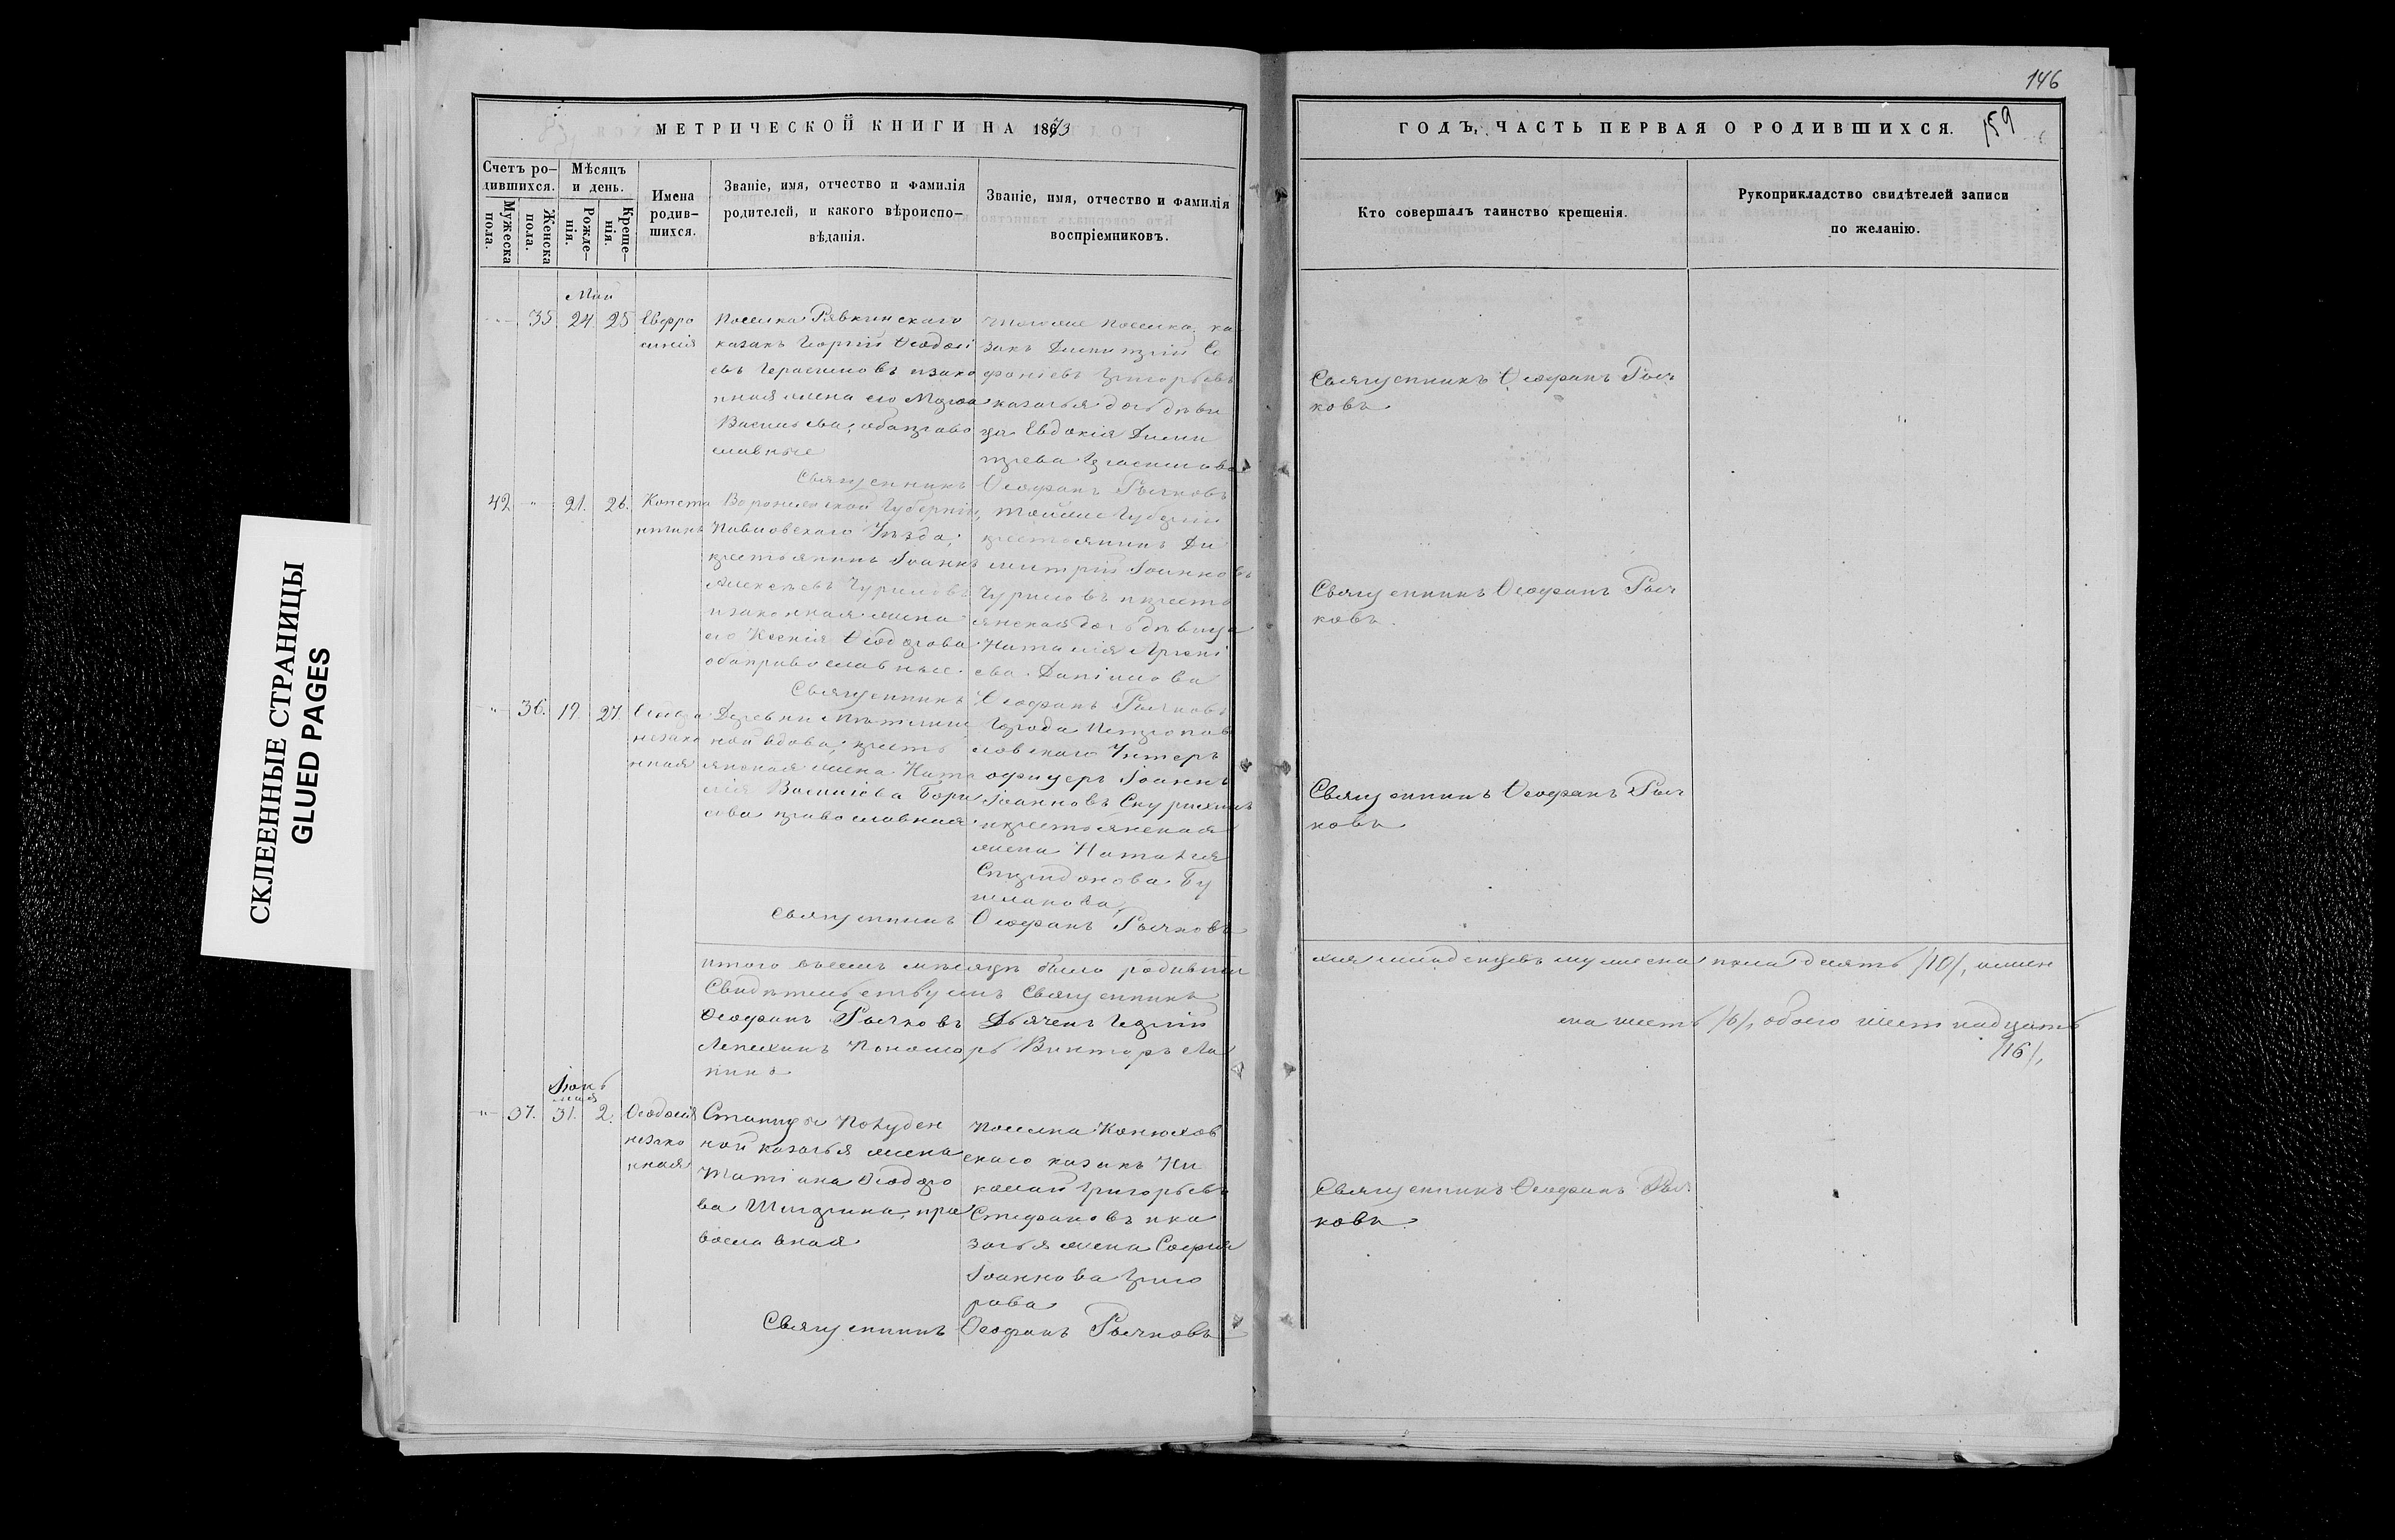 СКЛЕЕННЫЕ СТРАНИЦЫ
GLUED PAGES
МЕТРИЧЕСКОЙ КНИГИ НА 1873
Счетъ ро-
дившихся.
Мужеска
пола.
Женска
пола.
Мѣсяцъ
и день.
Рожде-
нія.
Креще-
нія.
Имена
родив-
шихся.
Званіе, имя, отчество и фамилія
родителей, и какого вѣроиспо-
вѣданія.
Званіе, имя, отчество и фамилія
воспріемниковъ.
Май
35 24 25
Евфро
синія
Поселка Рявкинскаго
казакъ Георгій Ѳеодосі
евъ Герасимовъ изако
нная жена его
Васильева, обаправо
славные
тогоже поселка ка
закъ Димитрій Со
фоніевъ Григорьевъ
казачья дочь дѣви
ца Евдокія Дими
тріева Герасимова
Священникъ Ѳеофанъ Рычковъ
42 " 21. 26.
Конста
нтинъ
Воронежской Губерніи,
Павловскаго Уѣзда,
крестьянинъ Іоаннъ
Алексѣевъ Чуриловъ
изаконная жена
его Ксенія Ѳеодорова
обаправославные.
тойже Губерніи
крестьянинъ Ди
митрій Іоанновъ
Чуриловъ икресть
янская дочь дѣвица
Наталія
ева Данилова
Священникъ Ѳеофанъ Рычковъ
" 36. 19. 27.
незако
нная
Деревни
ной вдова, кресть
янская жена Ната
лія Васильева Бори
сова православная
Города Петропав
ловскаго Унтеръ
офицеръ Іоаннъ
Іоанновъ
икрестьянская
жена Наталія
Спиридонова
Священникъ Ѳеофанъ Рычковъ
итого всемъ мѣсяцѣ было родивши
Свидѣтельствуемъ Священникъ
Ѳеофанъ Рычковъ Дьячекъ Георгій
Лепехинъ Пономарь Викторъ Ла
пинъ
Іюнь
мая
" 37. 31. 2.
Ѳеодосія
незако
нная
Станицы Полуден
ной казачья жена
Татіана Ѳеодоро
ва Шигрина, пра
вославная
поселка Конюхов
скаго казакъ Ни
колай Григорьевъ
Стефановъ ика
зачья жена Софія
Іоаннова Григо
рова
Священникъ Ѳеофанъ Рычковъ
146
ГОДЪ, ЧАСТЬ ПЕРВАЯ О РОДИВШИХСЯ.
159
Кто совершалъ таинство крещенія.
Рукоприкладство свидѣтелей записи
по желанію.
Священникъ Ѳеофанъ Рыч
ковъ
Священникъ Ѳеофанъ Рыч
ковъ.
Священникъ Ѳеофанъ Рыч
ковъ
хся младенцевъ мужеска пола десять /10/, женс
ка шесть /6/, обоего шестнадцать
/16/,
Священникъ Ѳеофанъ Рыч
ковъ.